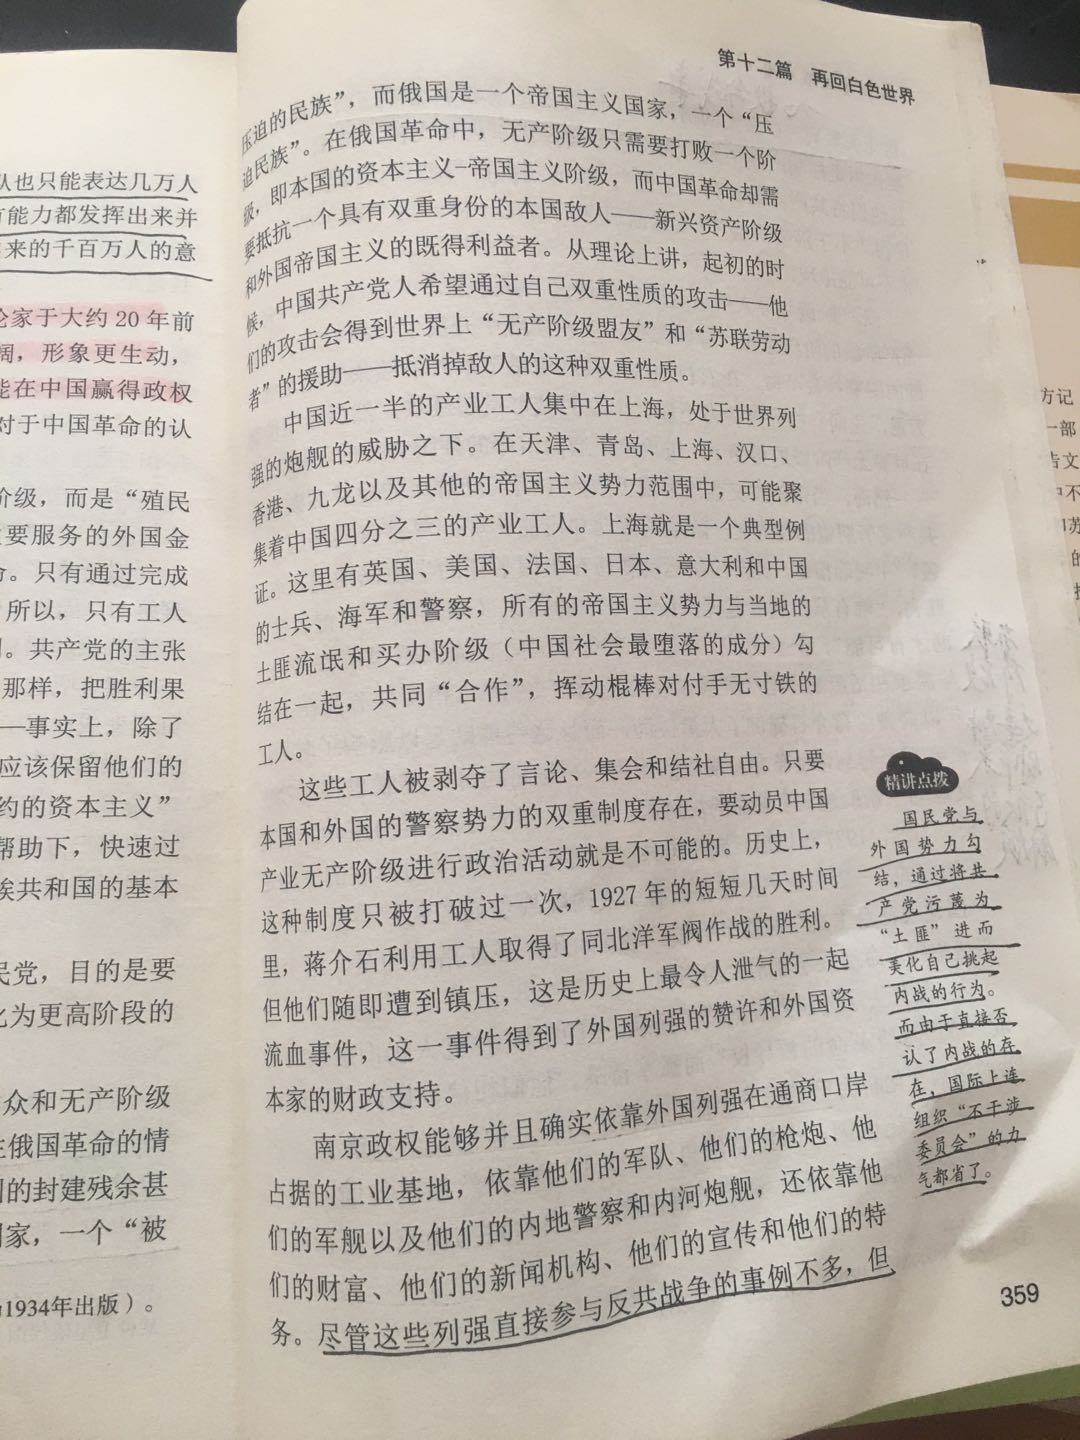 队也只能表达几万人
有能力都发挥出来并
来的千百万人的意
论家于大约20年前
阔，形象更生动，
能在中国赢得政权
对于中国革命的认
阶级，而是“殖民
要服务的外国金
。只有通过完成
所以，只有工人
。共产党的主张
那样，把胜利果
—事实上，除了
应该保留他们的
约的资本主义”
帮助下，快速过
埃共和国的基本
民党，目的是要
化为更高阶段的
众和无产阶级
在俄国革命的情
的封建残余甚
国家，一个“被
1934年出版）。
第十二篇 再回白色世界
压迫的民族”，而俄国是一个帝国主义国家，一个“压
迫民族”。在俄国革命中，无产阶级只需要打败一个阶
级，即本国的资本主义-帝国主义阶级，而中国革命却需
要抵抗一个具有双重身份的本国敌人——新兴资产阶级
和外国帝国主义的既得利益者。从理论上讲，起初的时
候，中国共产党人希望通过自己双重性质的攻击——他
们的攻击会得到世界上“无产阶级盟友”和“苏联劳动
者”的援助——抵消掉敌人的这种双重性质。
中国近一半的产业工人集中在上海，处于世界列
强的炮舰的威胁之下。在天津、青岛、上海、汉口、
香港、九龙以及其他的帝国主义势力范围中，可能聚
集着中国四分之三的产业工人。上海就是一个典型例
证。这里有英国、美国、法国、日本、意大利和中国
的士兵、海军和警察，所有的帝国主义势力与当地的
土匪流氓和买办阶级（中国社会最堕落的成分）勾
结在一起，共同“合作”，挥动棍棒对付手无寸铁的
工人。
这些工人被剥夺了言论、集会和结社自由。只要
本国和外国的警察势力的双重制度存在，要动员中国
产业无产阶级进行政治活动就是不可能的。历史上，
这种制度只被打破过一次，1927年的短短几天时间
里，蒋介石利用工人取得了同北洋军阀作战的胜利。
但他们随即遭到镇压，这是历史上最令人泄气的一起
流血事件，这一事件得到了外国列强的赞许和外国资
本家的财政支持。
南京政权能够并且确实依靠外国列强在通商口岸
占据的工业基地，依靠他们的军队、他们的枪炮、他
们的军舰以及他们的内地警察和内河炮舰，还依靠他
们的财富、他们的新闻机构、他们的宣传和他们的特
务。尽管这些列强直接参与反共战争的事例不多，但
精讲点拨
国民党与
外国势力勾
结，通过将共
产党污蔑为
“土匪”进而
美化自己挑起
内战的行为。
而由于直接否
认了内战的存
在，国际上连
组织“不干涉
委员会”的力
气都省了。
359
方记
一部
告文
中不
的